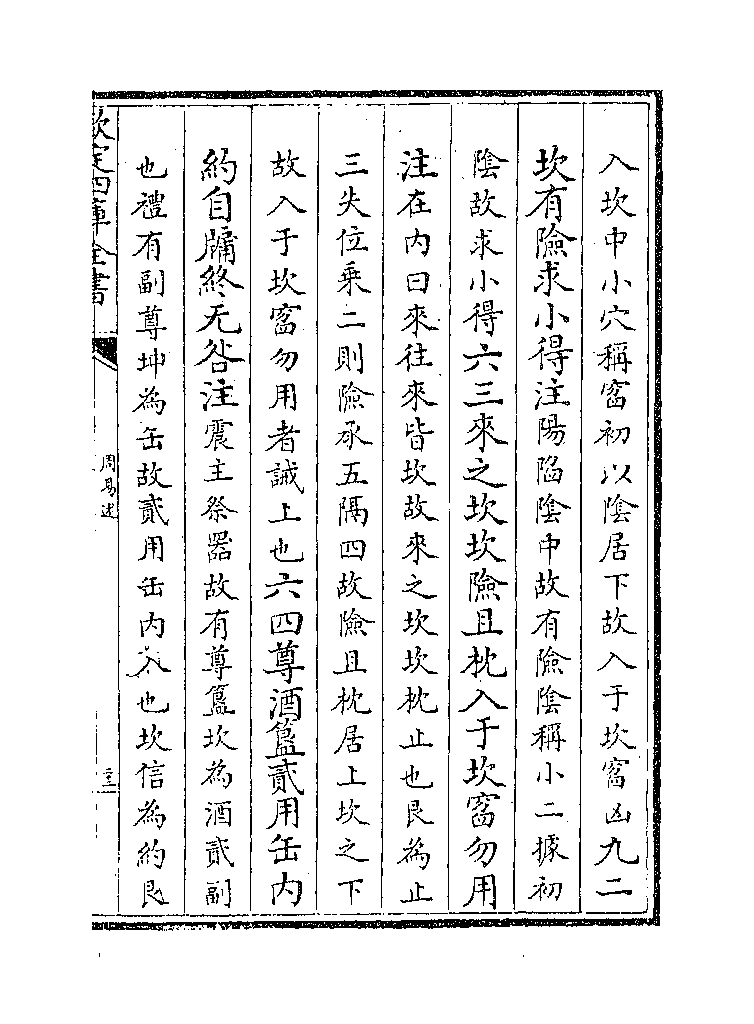 入坎中小穴稱窞初以陰居下故入于坎窞凶九二
坎有險求小得注陽陷陰中故有險陰稱小二據初
陰故求小得六三來之坎坎險且枕入于坎窞勿用
注在内曰來往來皆坎故來之坎坎枕止也艮為止
三失位乗二則險承五隔四故險且枕居上坎之下
故入于坎窞勿用者誡上也六四尊酒簋貳用缶内
約自牖終无咎注震主祭器故有尊簋坎為酒貳副
也禮有副尊坤為缶故貳用缶内入也坎信為約艮
欽定四庫全書
周易述